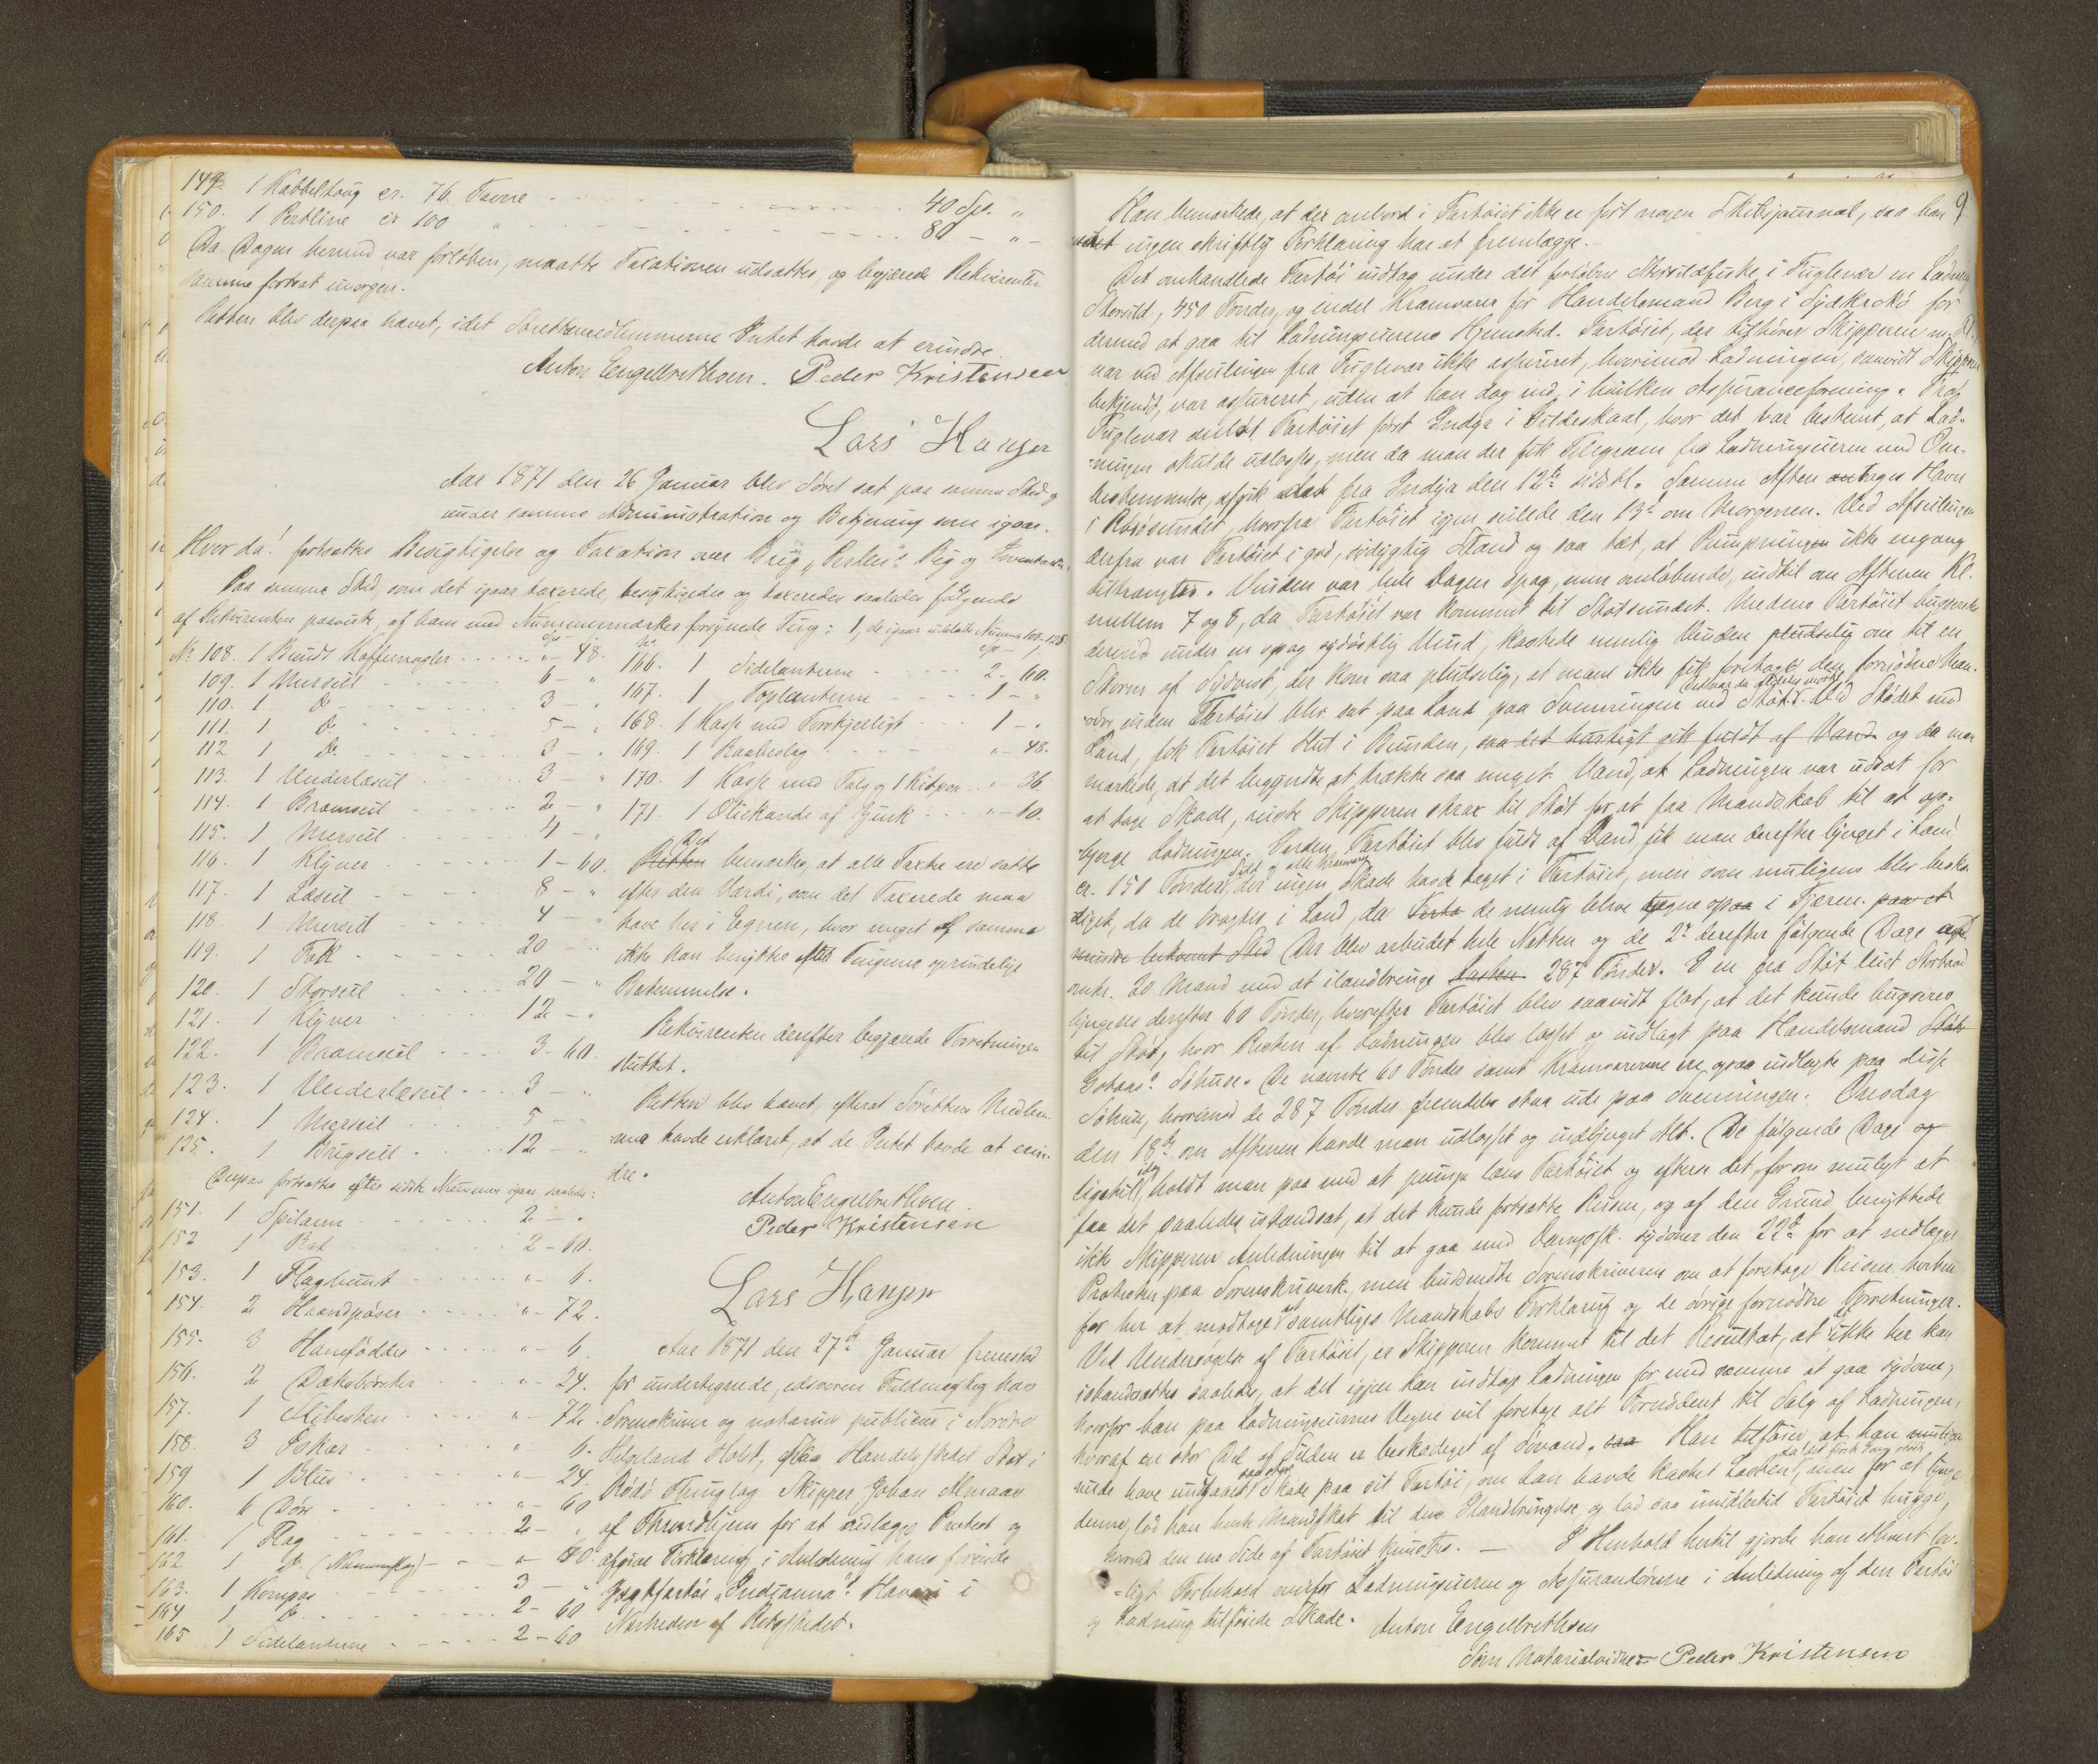 149. 1 Kabbeltoug cr. 76 Favne - - - 40 Spd. "
150. 1 Pertline cr 100 " - - - 80 - " -
Da Dagen hermed var forløben, maatte Taxationen udsættes, og begjærede Rekvirenten
samme fortsat imorgen.
Retten blev derpaa hævet, idet Sørettsmedlemmerne Intet havde at erindre.
Anton Engelbrethsen. Peder Kristensen
Lars Hansen
Aar 1871 den 26 Januar blev Søret sat paa samme Sted og
under samme Administration og Betjening som igaar.
Hvor da! fortsattes Besigtigelse og Taxation over Brig "Perlen"s Rig og Inventarium.
Paa samme Sted, som det igaar taxerede, besigtigedes og taxeredes saaledes følgende
af Rekvirenten paaviste, af ham med Nummermærker forsynede Tug: 1, de igaar udeladte Numere 108-125.
No 108. 1 Bundt Koffernagler - - - " - 48.
109. 1 Mersseil - - - 6 - "
110. 1 Do - - - 3 - "
111. 1 Do - - - 5 - "
112 1 Do - - - 3 - "
113. 1 Underlæseil - - - 3 - "
114. 1 Bramseil - - - 2 - "
115. 1 Merseil - - - 4 - "
116. 1 Klyver - - - 1 - 60.
117. 1 Læseil - - - 8 - "
118. 1 Merseil - - - 4 - "
119. 1 Fok - - - 20 - "
120. 1 Storseil - - - 20 - "
121. 1 Klyver - - - 12 - "
122. 1 Bramseil - - - 3 - 60.
123. 1 Underlæseil - - - 3 - "
124. 1 Merseil - - - 5 - "
125. 1 Brigseil - - - 12 - "
Derpaa fortsattes efter sidste Nummer igaar saaledes:
151. 1 Spilarm - - - 2 - "
152 1 Rat - - - 2 - 60.
153. 1 Flagbunt - - - " - 6.
154. 2 Haandpøser - - - " - 72.
155. 3 Hanefødder - - - " - 6.
156. 2 Dæksbørster - - - " - 24.
157. 1 - - - " - 72.
158. 3 Eskar - - - " - 6.
159 1 Blus - - - " - 24.
160. 6 Dør - - - " - 60
161. 1 Flag - - - 2 - "
162 1 Do (Nummerflag) - - - " - 40.
163. 1 Kompas - - - 3 - "
164 1 Do - - - 2 - 60
165 1 Sidelanterne - - - 2 - 60
166. 1 Sidelanterne - - - 2 - 60.
167. 1 Toplanterne - - - 1 - "
168. 1 Kasse med Forskjelligt - - - 1 - "
169. 1 Raabeslag - - - " - 48.
170. 1 Kasse med Talg og 1 - - - " 36.
171. 1 Oliekande af Zink - - - " - 10.
Det
Retten bemærkes, at alle Taxter ere satte
efter den Værdi, som det Taxerede maa
have her i Egnen, hvor meget af samme
ikke kan benyttes efter Tingenes oprindelige
Bestemmelse.
Rekvirenten derefter begjærede Forretningen
sluttet.
Retten blev hævet, efterat Sørettens Medlem-
mer havde erklæret, at de Intet havde at erin-
dre.
Anton Engelbrethsen.
Peder Kristensen
Lars Hansen
Aar 1871 den 27de Januar fremstod
for undertegnede, edsvoren Fuldmægtig hos
Sorenskriver og notarius publicus i Nordre
Helgeland Holst, paa Handelsstedet Støt i
Rødø Thinglag Skipper Johan Almaas
af Throndhjem for at nedlægge Protest og
afgive Forklaring i Anledning hans førende
Jagtfartøi "Indianna"s Havari i
Nærheden af Retsstedet.
9
Han bemærkede, at der ombord i Fartøiet ikke er ført nogen Skibsjournal, saa han
ingen skriftlig Forklaring har at fremlægge.-
Det omhandlede Fartøi indtog under det forløbne Storsildefiske i Fuglevær en Ladning
Storsild, 450 Tønder, og endel Kramvarer for Handelsmand Berg i Sydkrokø for
dermed at gaa til Ladningseierens Hjemsted. Fartøiet, der tilhører Skipperen
var ved Afseilingen fra Fuglevær ikke assureret, hvorimod Ladningen, saavidt Skipperen
bekjendt, var assureret, uden at han dog ved, i hvilken Assuranceforening. Fra
Fuglevær anløb Fartøiet først Indyr i Gildeskaal, hvor det var bestemt, at Lad-
ningen skulde udlosses, men da man der fik Telegram fra Ladningseieren med Om-
bestemmelse, afgik det fra Indyr den 12te sidstl. Samme Aften toges Havn
i Røssundet, hvorfra Fartøiet igjen seilede den 13de om Morgenen. Ved Afseilingen
derfra var Fartøiet i god, sødygtig Stand og saa tæt, at Pumpningen ikke engang
tiltrængtes. Vinden var hele Dagen spag, men omløbende, indtil om Aftenen Kl.
mellem 7 og 8, da Fartøiet var kommet til Støtsundet. Medens Fartøiet bugserede
derind under en spag sydøstlig Vind, kastede nemlig Vinden pludselig om til en
Storm af Sydvest, der kom saa pludselig, at man ikke fik foretaget den fornødne Man-
det var da aldeles mørkt
øvre, inden Fartøiet blev sat paa Land paa Svenningen ved Støt. Ved Stødet mod
Land, fik Fartøiet Hul i Bunden, saa det hurtigt gik fuldt af Vand og da man
mærkede, at det begyndte at trække saa meget Vand, at Ladningen var udsat for
at tage Skade, reiste Skipperen strax til Støt for at faa Mandskab til at op-
bjerge Ladningen. Inden Fartøiet blev fuldt af Vand fik man derefter bjerget i Land
Sild og alle Kramvarer
cr. 150 Tønder, der ingen Skade havde taget i Fartøiet, men som muligens blev beska-
diget, da de bragtes i Land, da de nemlig bleve i Fjæren. paa et
mindre bekvemt Sted Der blev arbeidet hele Natten og de 2de derefter følgende Dage med
omtr. 20 Mand med at ilandbringe Lasten 287 Tønder. I en fra Støt leiet Storbaad
bjergedes derefter 60 Tønder, hvorefter Fartøiet blev saavidt flot, at det kunde bugseres
til Støt, hvor Resten af Ladningen blev losset og indlagt paa Handelsmand Støt
Gotaas's Søhuse. De nævnte 60 Tønder samt Kramvarerne ere ogsaa indlagte paa disse
Søhuse, hvorimod de 287 Tønder fremdeles staa ude paa Svenningen. Onsdag
den 18de om Aftenen havde man udlosset og indbjerget Alt. De følgende Dage og
ligetil idag holdt man paa med at pumpe læns Fartøiet og eftersee det, for om muligt at
faa det saaledes istandsat, at det kunde fortsætte Reisen, og af den Grund benyttede
ikke Skipperen Anledningen til at gaa med Dampsk. sydover den 22de for at nedlægge
Protesten paa Sorenskriverk. men budsendte Sorenskriveren om at foretage Reisen herhen
for her at modtage samtliges Mandskabs Forklaring og de øvrige fornødne Forretninger.
Ved Undersøgelse af Fartøiet, er Skipperen kommet til det Resultat, at det ikke her kan
istandsættes saaledes, at det igjen kan indtage Ladningen for med samme at gaa sydover,
hvorfor han paa Ladningseiernes Vegne vil foretage alt Fornødent til Salg af Ladningen,
hvoraf en stor Del af Silden er beskadiget af Søvand. saa Han tilføier, at han muligens
saa stor da det først tog stød
vilde have undgaaet Skade paa sit Fartøi, om han havde kastet Lasten, men for at bjerge
denne, lod han hente Mandskab til dens Ilandbringelse og lod saa imidlertid Fartøiet hugge,
hvorved den ene Side af Fartøiet knustes. — I Henhold hertil gjorde han ethvert lov-
ligt Forbehold overfor Ladningseierne og Assurandørerne i Anledning af den Fartøi
og Ladning tilføiede Skade. Anton Engelbrethsen
Som Notarialvidner Peder Kristensen